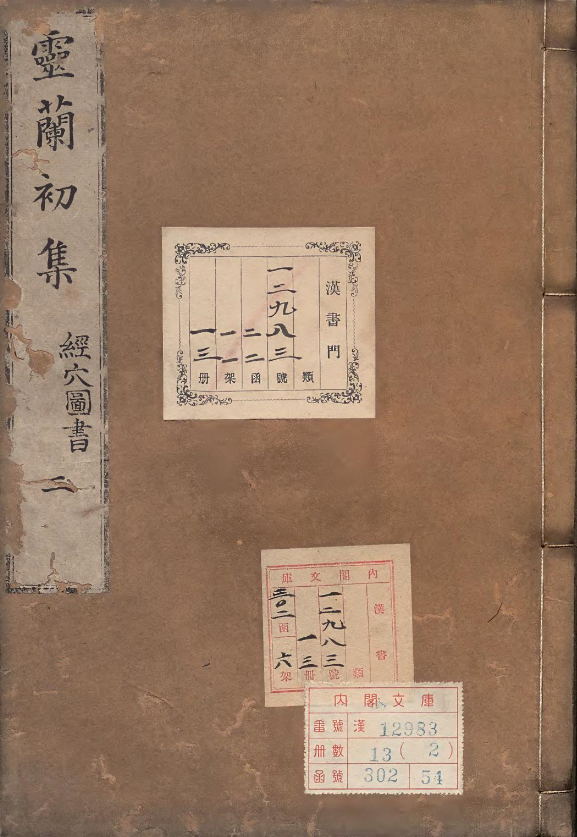 靈蘭初集
經穴圖書
二
漢書門
類
一二九八三號
二二函
一一架
一三册
內閣文庫
漢書
類
一二九八三號
一三冊
函
六架
内閣文庫
番號 漢 12983
冊數 13 ( 2 )
函號 302 54